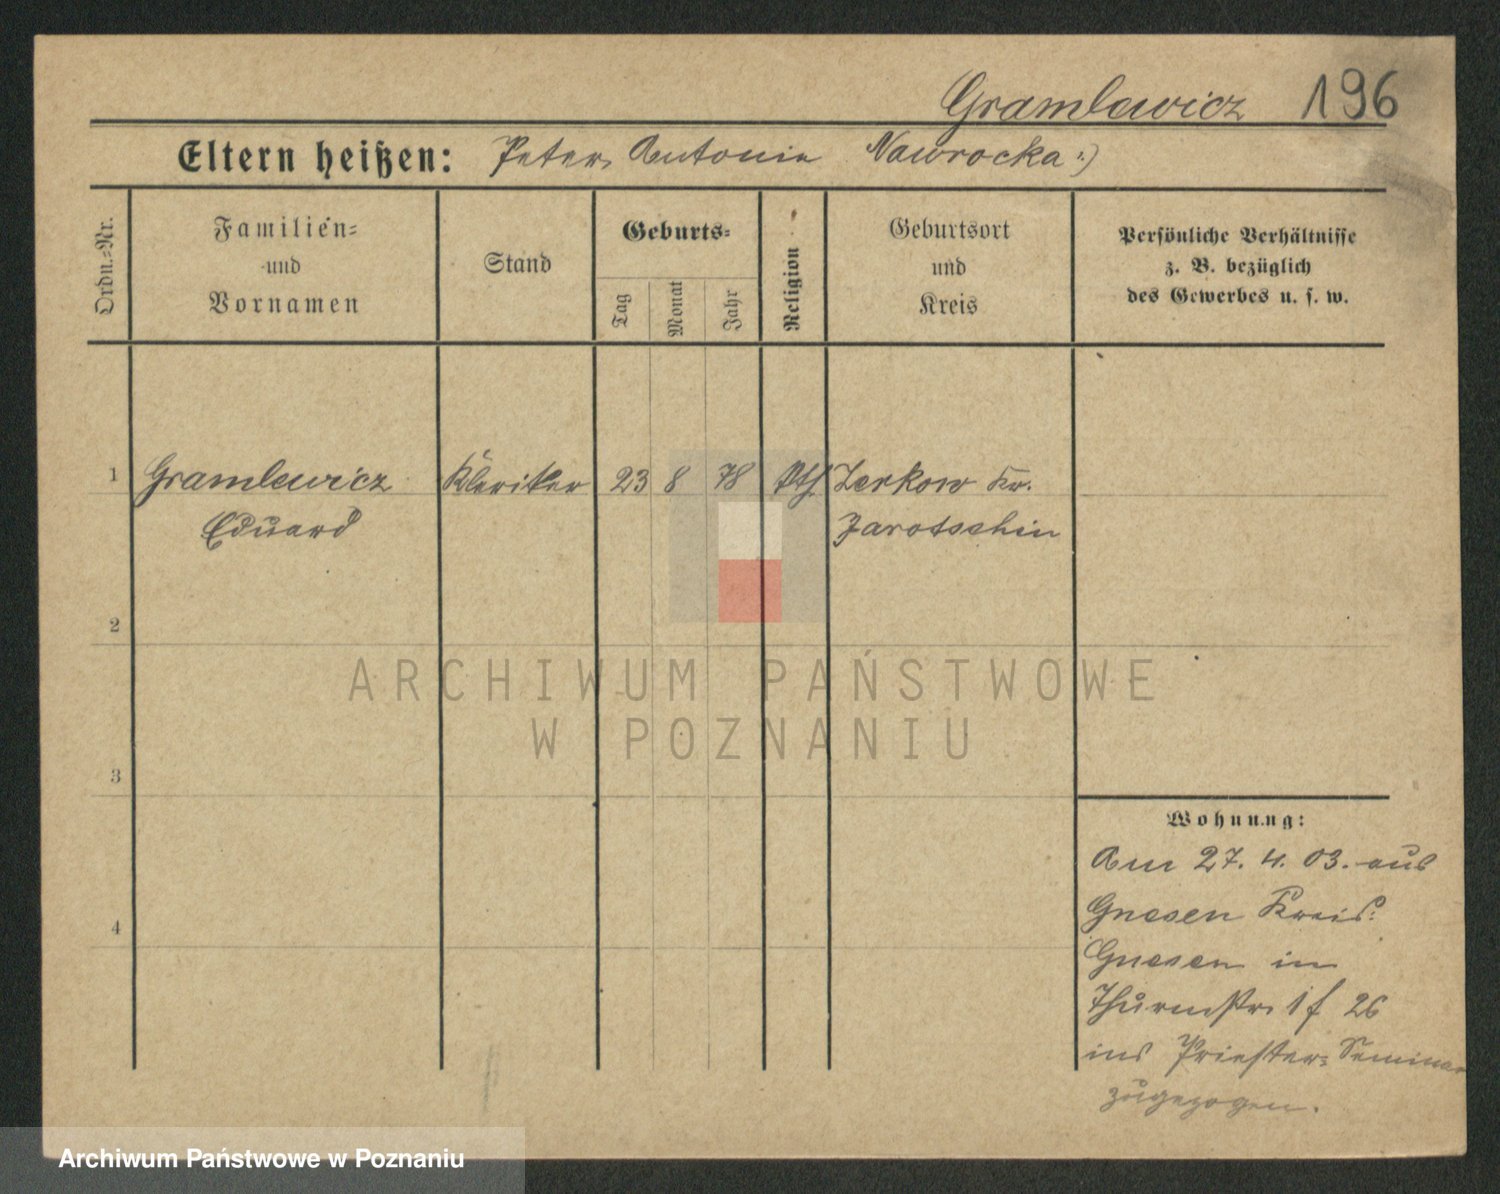 Gramlewicz 196
Eltern heißen: Peter, Antonie Nawrocka :)
Ordn.-Nr.
Familien- und Vornamen
Stand
Geburts-
Tag
Monat
Jahr
Religion
Geburtsort und Kreis
Persönliche Verhältnisse
z. B. bezüglich
des Gewerbes u. s. w.
1 Gramlewicz Kleriker 23 8 78 kth Zerkow Kr.
Eduard Jarotschin
2
ARCHIWUM PAŃSTWOWE
W POZNANIU
3
Wohnung:
Am 27. 4. 03. aus
Gnesen Kreis:
4
Gnesen in
Thurmstr. 1 f 26
ins Priester-Seminar
zugezogen.
Archiwum Państwowe w Poznaniu